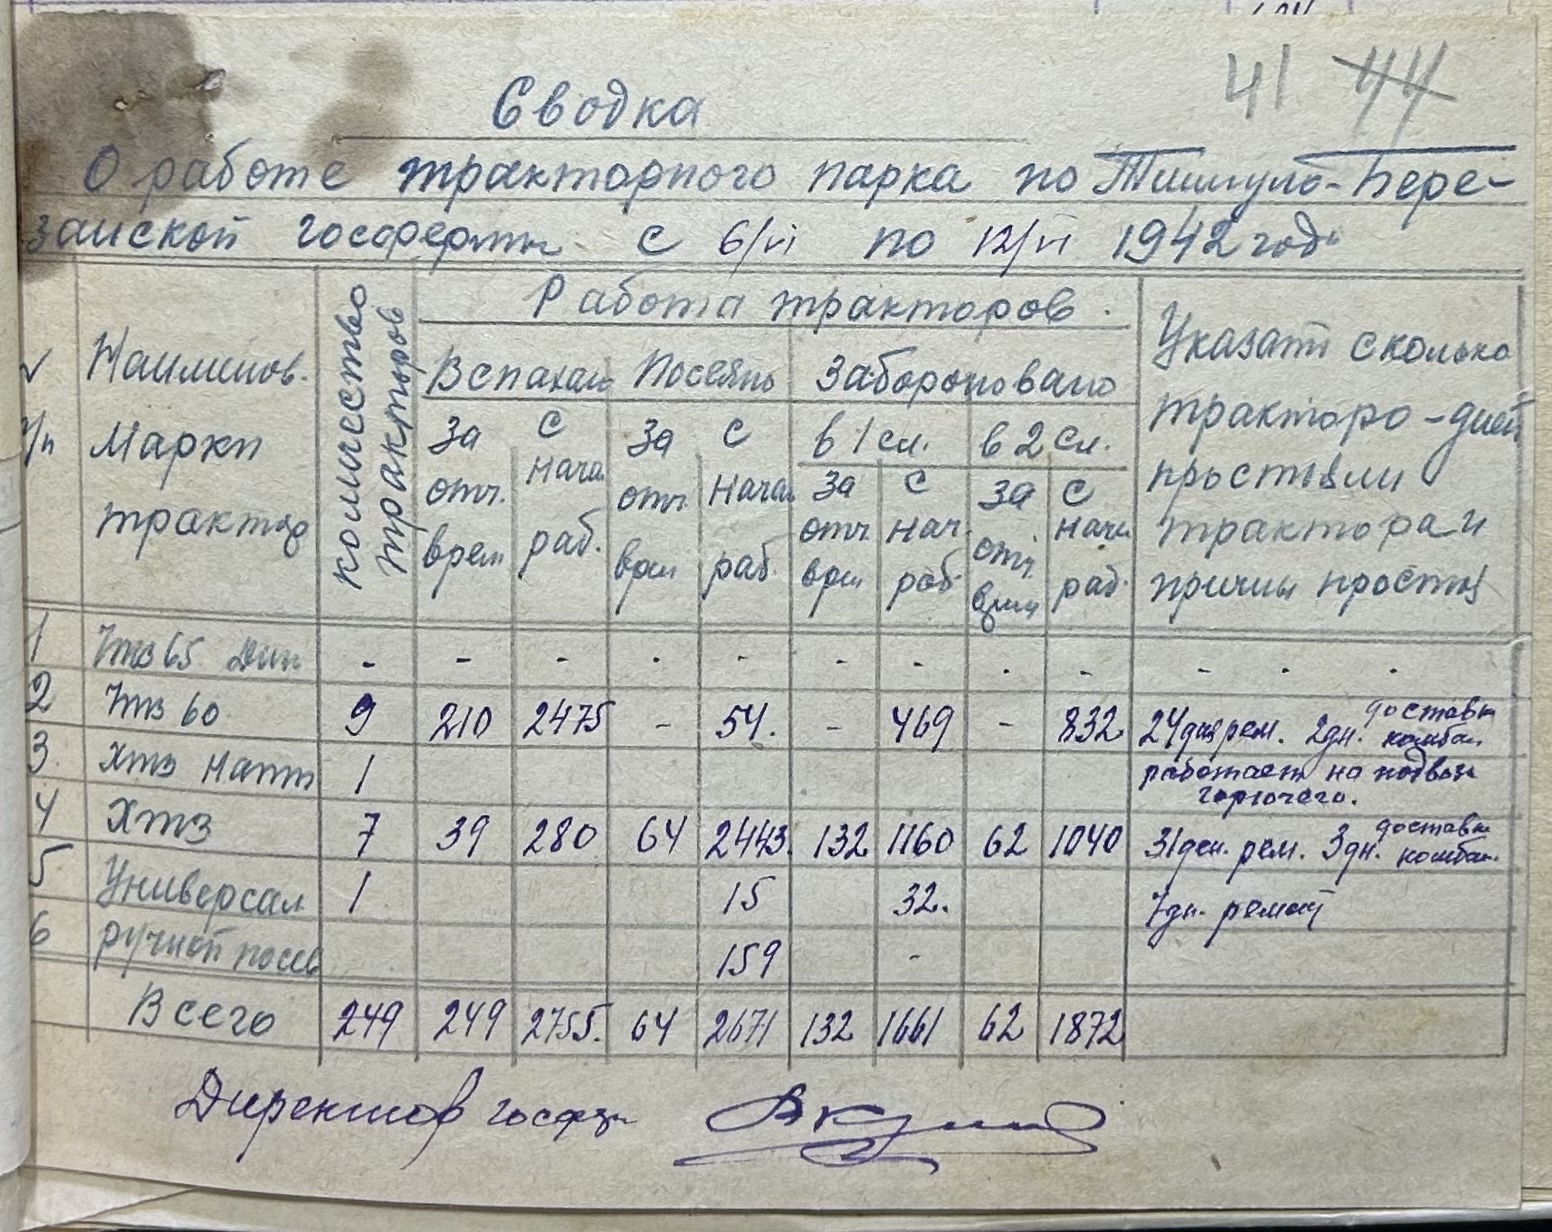 41 44
Сводка
О работе тракторного парка по Тишуло-Бере-
занской госферты с 6/VI по 12/VI 1942 год
№ п/п | Наименов. Марки трактор | количество тракторов | Работа тракторов. | Указать сколько тракторо-дней простояли трактора и причины простоя
Вспахано | Посеяно | Забороновано
в 1 сл. | в 2 сл.
За отч. врем | С нача раб. | За отч. врем | С начал раб. | За отч врем | С нач. раб. | За отч. врем | С нач. раб.
1 | ЧТЗ 65 Диз | - | - | - | - | - | - | - | - | - | - - -
2 | ЧТЗ 60 | 9 | 210 | 2475 | - | 54. | - | 469 | - | 832 | 24 дня рем. 2 дн. доставк комбай
3. | ХТЗ Натт | 1 | работает на подвозе горючего.
4 | ХТЗ | 7 | 39 | 280 | 64 | 2443. | 132 | 1160 | 62 | 1040 | 31 ден. рем. 3 дн. доставк комбай.
5. | Универсал | 1 | 15 | 32. | 7 дн. ремонт
6 | ручной посев | 159 | -
Всего | 249 | 249 | 2755. | 64 | 2671 | 132 | 1661 | 62 | 1872
Директор госфер